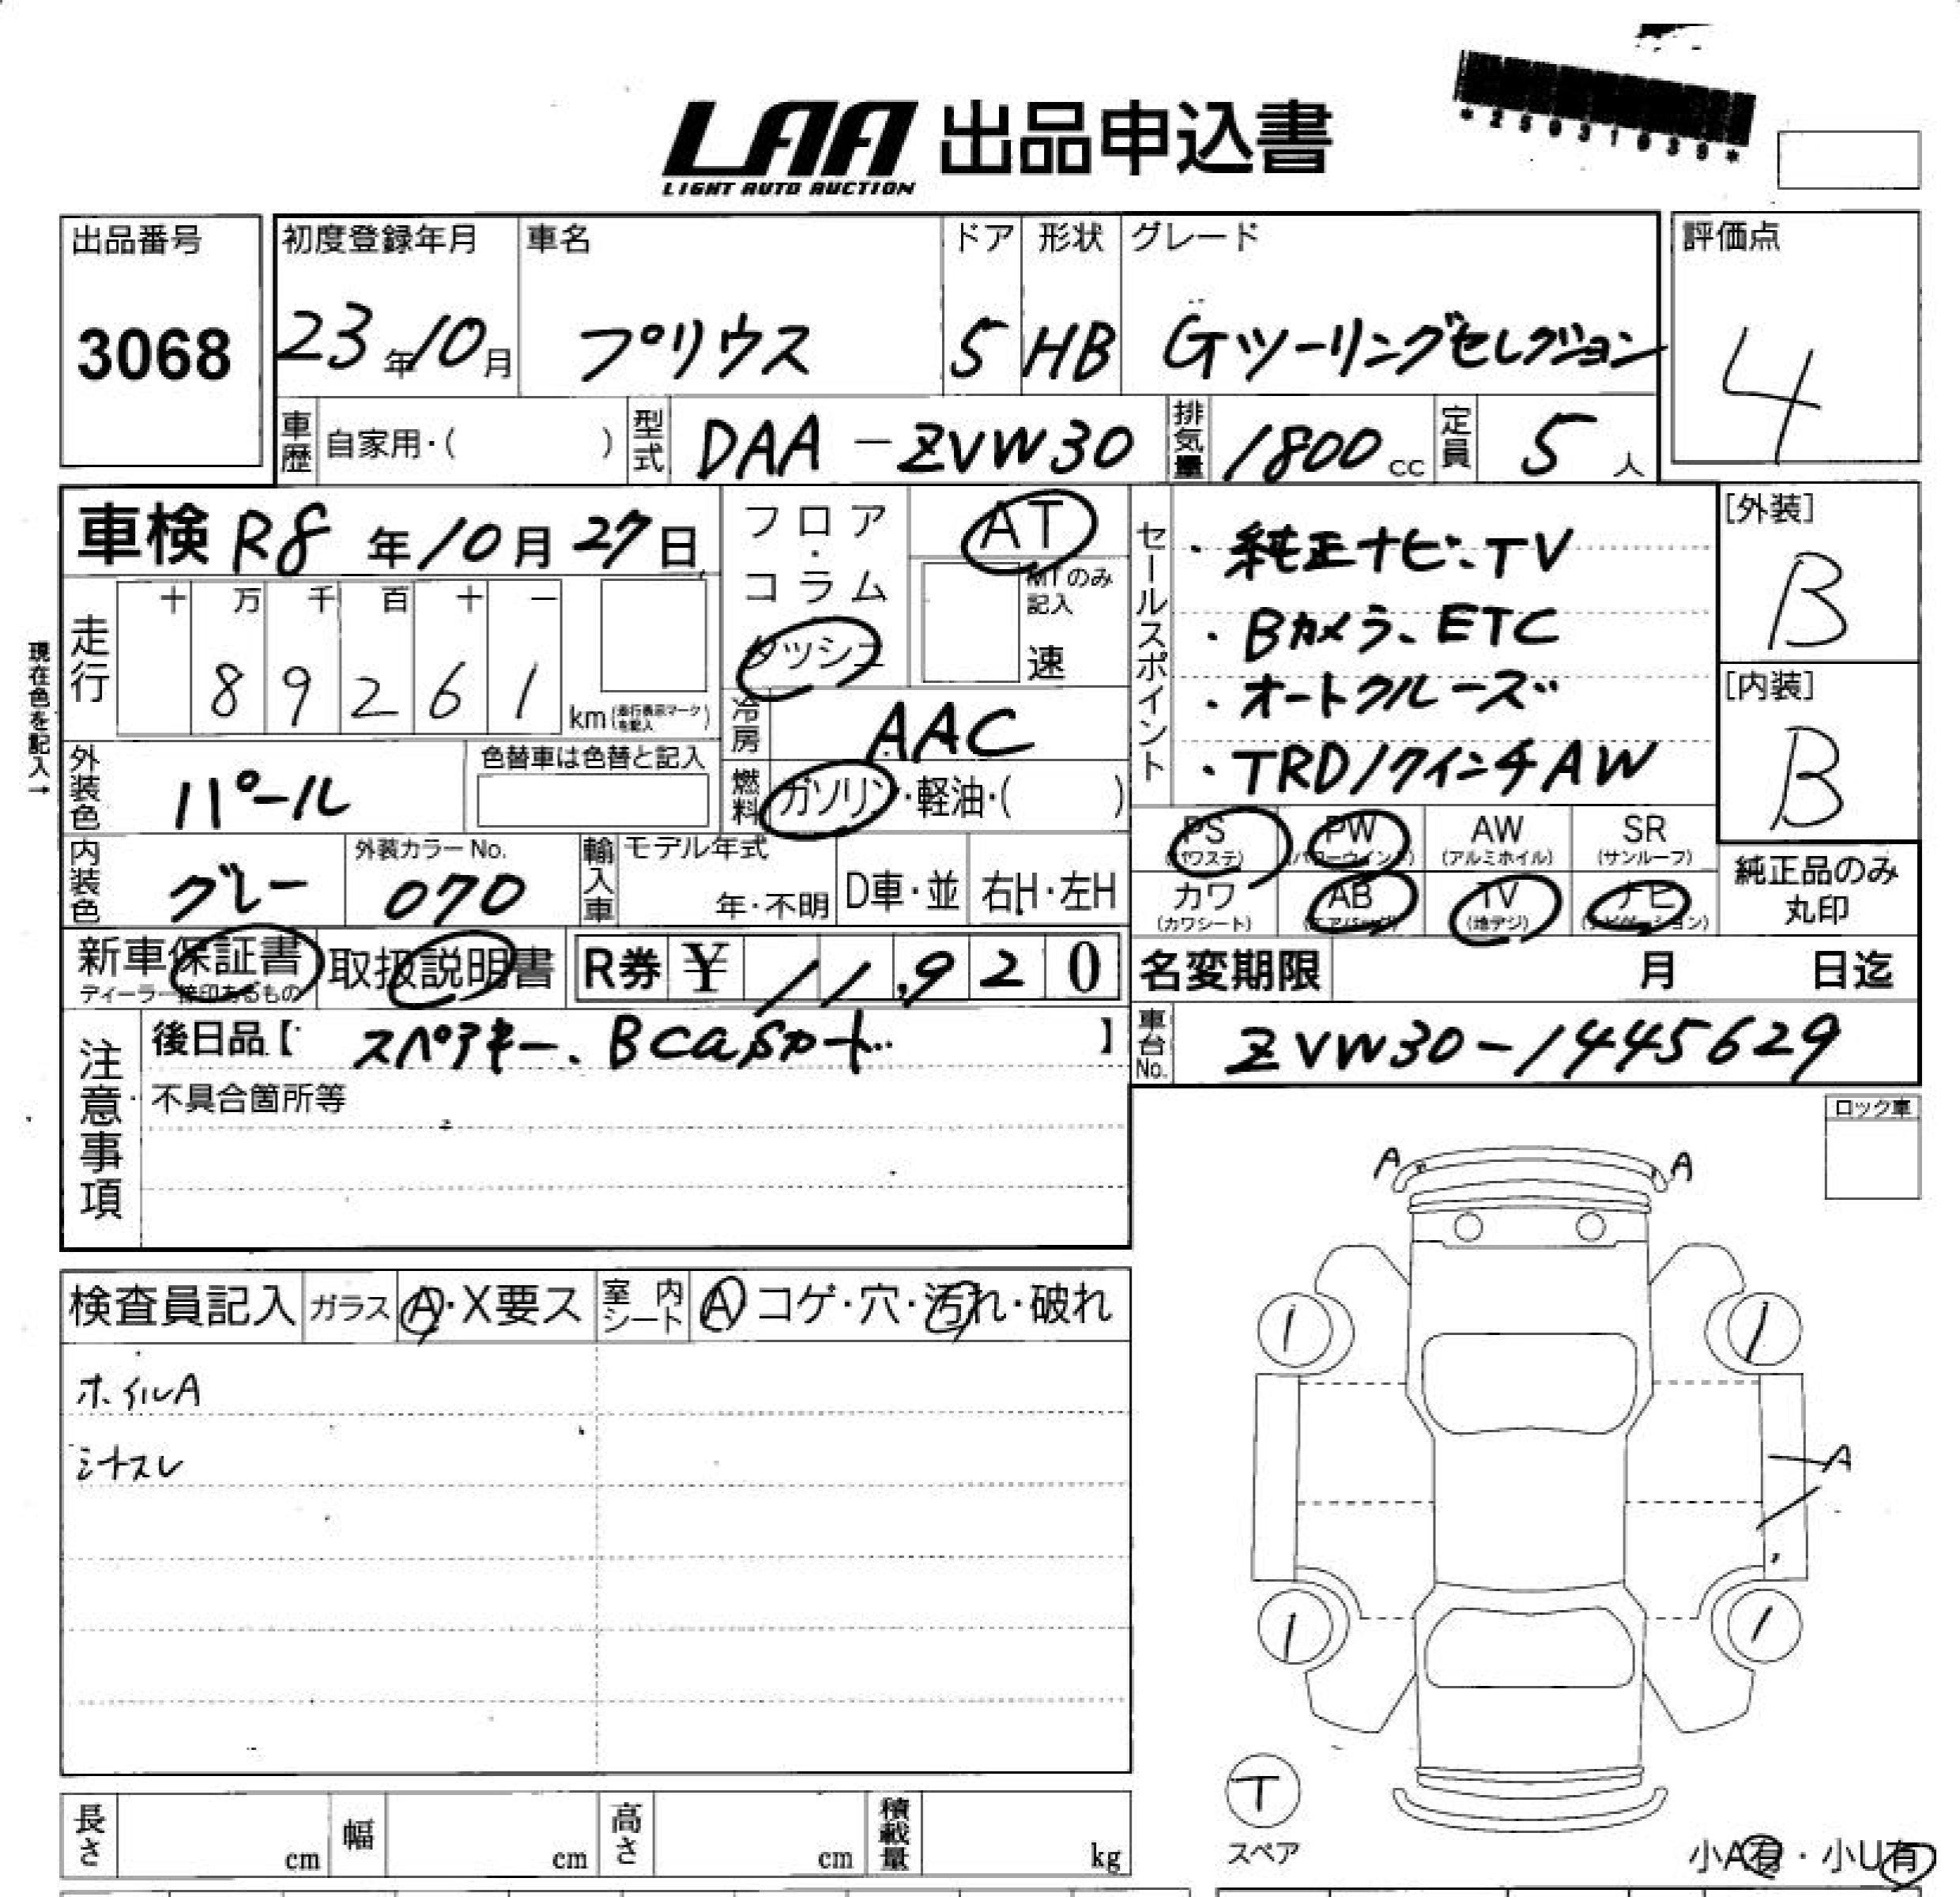 LAA 出品申込書
LIGHT AUTO AUCTION
*25031039*
出品番号
3068
初度登録年月 車名 ドア 形状 グレード
23年10月 プリウス 5 HB Gツーリングセレクション
評価点
4
車歴 自家用・( ) 型式 DAA-ZVW30 排気量 1800cc 定員 5人
車検 R8年10月27日
フロア・コラム
ダッシュ
AT
MTのみ記入
速
セールスポイント
・純正ナビ、TV
・Bカメラ、ETC
・オートクルーズ
・TRD17インチAW
[外装]
B
[内装]
B
現在色を記入→
走行 十 万 千 百 十 一
89261 km(走行表示マークを記入)
冷房 AAC
外装色 パール 色替車は色替と記入
燃料 ガソリン・軽油・( )
PS PW AW SR
(パワステ) (パワーウィンドウ) (アルミホイル) (サンルーフ)
カワ AB TV ナビ
(カワシート) (エアバッグ) (地デジ) (ナビゲーション)
純正品のみ
丸印
内装色 グレー 外装カラーNo. 070
輸入車 モデル年式 年・不明 D車・並 右H・左H
新車保証書 取扱説明書 R券 ¥ 11,920
ディーラー捺印あるもの
名変期限 月 日迄
注意事項
後日品【 スペアキー、Bcasカード 】
車台No. ZVW30-1445629
不具合箇所等
ロック車
A A
検査員記入 ガラス A・X要ス 室内シート A コゲ・穴・汚れ・破れ
ホイルA
シナスレ
1 1
A
1 1
T
スペア
小A有・小U有
長さ cm 幅 cm 高さ cm 積載量 kg